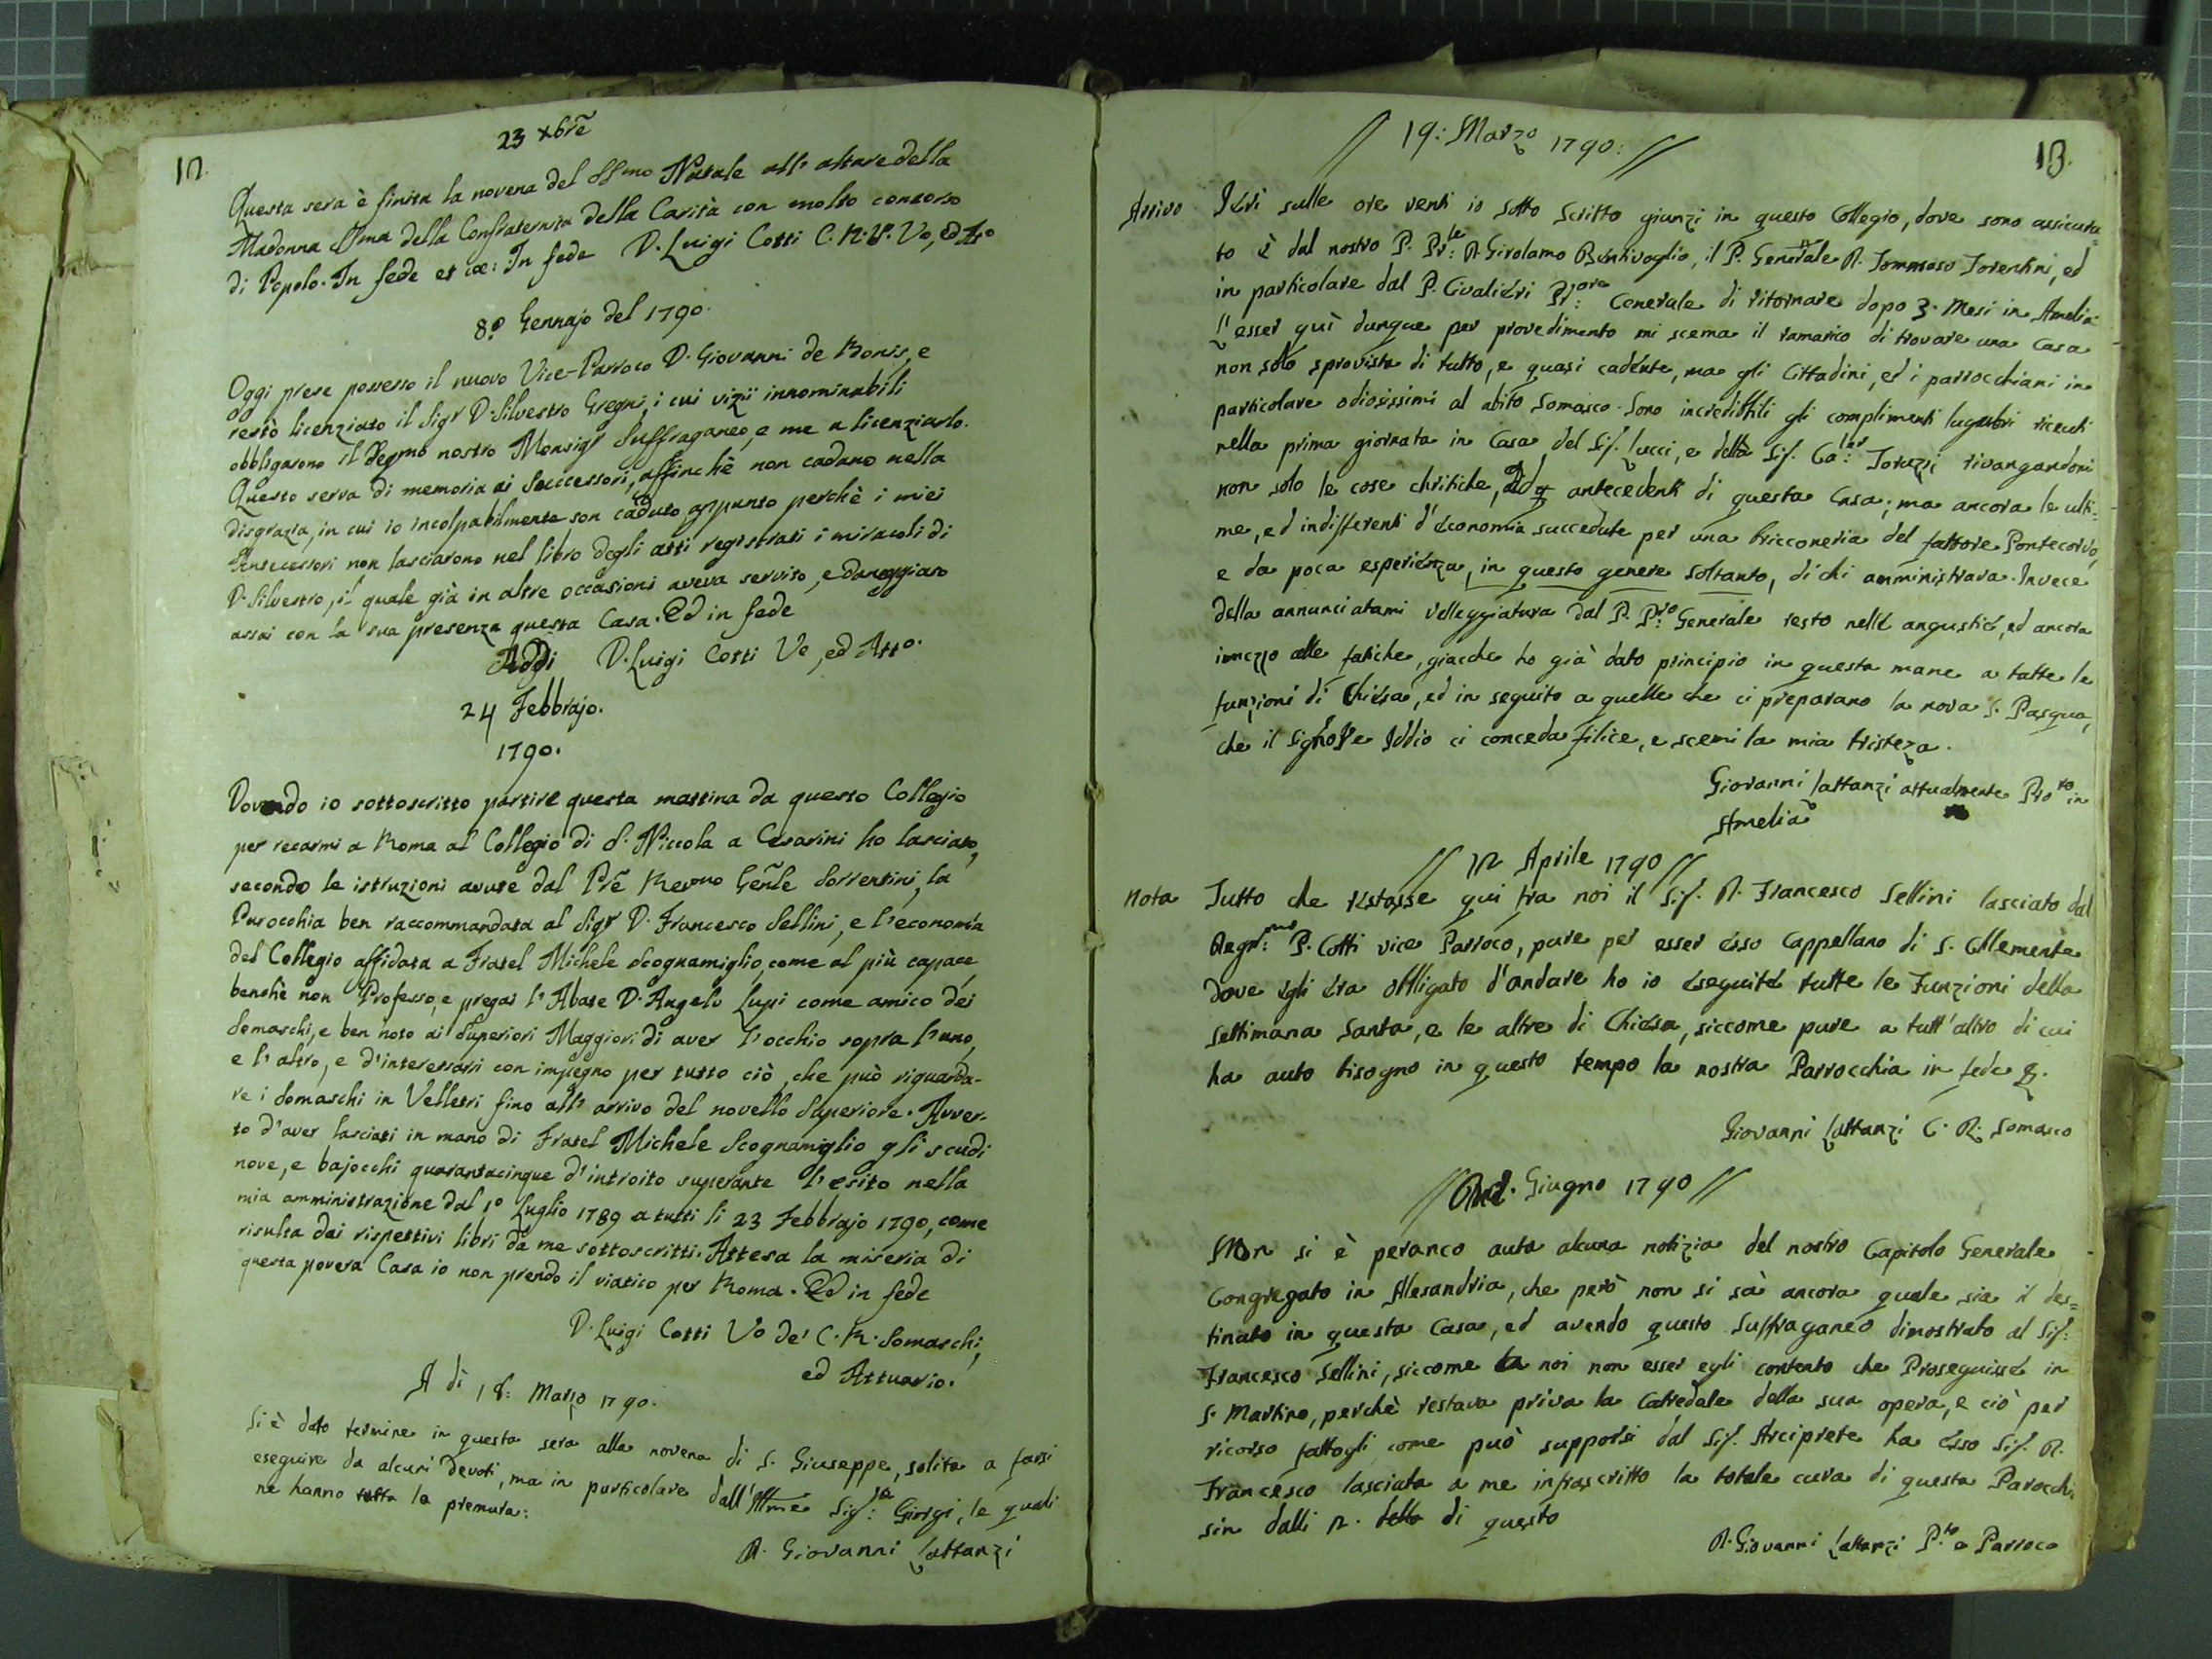 12.
23 xbre
Questa sera è finita la novena del SSmo Natale all' altare della
Madonna SSma della Confraternita della Carità con molto concorso
di Popolo. In fede et ce: In fede D. Luigi Cotti C. R. S. Vo, ed Atto
8º Gennajo del 1790.
Oggi prese possesso il nuovo Vice-Parroco D. Giovanni de Bonis, e
restò licenziato il Sigr D. Silvestro Gregni, i cui vizii innominabili
obbligarono il degmo nostro Monsigr Suffraganeo, e me a licenziarlo.
Questo serva di memoria ai Successori, affinchè non cadano nella
disgrazia, in cui io incolpabilmente son caduto appunto perchè i miei
Antecessori non lasciarono nel libro degli atti registrati i miracoli di
D. Silvestro, il quale già in altre occasioni aveva servito, e daneggiato
assai con la sua presenza questa Casa. Ed in fede
Addi D. Luigi Cotti Vo, ed Atto.
24 Febbrajo.
1790.
Dovendo io sottoscritto partire questa mattina da questo Collegio
per recarmi a Roma al Collegio di S. Niccola a Cesarini ho lasciato,
secondo le istruzioni avute dal Pre Revmo Genle Sorrentini, la
Parocchia ben raccommandata al Sigr D. Francesco Sellini, e l'economia
del Collegio affidata a Fratel Michele Scognamiglio, come al più capace
benchè non Professo, e pregai l'Abate D. Angelo Lupi come amico dei
Somaschi, e ben noto ai Superiori Maggiori di aver l'occhio sopra l'uno,
e l'altro, e d'interessarsi con impegno per tutto ciò, che può riguarda-
re i Somaschi in Velletri fino all' arrivo del novello Superiore. Avver-
to d'aver lasciati in mano di Fratel Michele Scognamiglio gli scudi
nove, e bajocchi quarantacinque d'introito superante l'esito nella
mia amministrazione dal 1º Luglio 1789 a tutti li 23 Febbrajo 1790, come
risulta dai rispettivi libri da me sottoscritti. Attesa la miseria di
questa povera Casa io non prendo il viatico per Roma. Ed in fede
D. Luigi Cotti Vo de' C. R. Somaschi,
ed Attuario.
A dì 18: Marzo 1790.
Si è dato termine in questa sera alla novena di S. Giuseppe, solita a farsi
eseguire da alcuni devoti, ma in particolare dall' Illme Sig:re Giorgi, le quali
ne hanno tutta la premura:
D. Giovanni Lattanzi
13.
// 19: Marzo 1790: //
Arrivo Ieri sulle ore venti io sotto scritto giunzi in questo Collegio, dove sono assicura=
to è dal nostro P. Pr:le D. Girolamo Bentivoglio, il P. Generale D. Tommaso Sorentini, ed
in particolare dal P. Civalieri Pr:ore Generale di ritornare dopo 3. Mesi in Amelia
l'esser quì dunque per provedimento mi scema il ramarico di trovare una Casa
non solo sprovista di tutto, e quasi cadente, ma gli Cittadini, ed i parrocchiani in
particolare odiosissimi al abito Somasco. Sono incredibili gli complimenti lugubri ricevuti
nella prima giornata in Casa del Sig. Lucci, e della Sig. Ca: Toruzzi rivangandomi
non solo le cose chritiche, antecedenti di questa Casa; ma ancora le ulti-
me, ed indifferenti d'Economia succedute per una bricconeria del fattore Pontecorvo,
e da poca esperienza, in questo genere soltanto, di chi amministrava. Invece
della annunciatami velleggiatura dal P. Pr:re Generale resto nelle angustie, ed ancora
imezzo alle fatiche, giacche ho già dato principio in questa mane a tutte le
funzioni di Chiesa, ed in seguito a quelle che ci preparano la nova S. Pasqua,
che il Signore Iddio ci conceda filice, e scemi la mia tristeza.
Giovanni Lattanzi attualmente Proto in
Amelia
// 12 Aprile 1790 //
Nota Tutto che restasse qui tra noi il Sig. D. Francesco Sellini lasciato dal
Degn:mo P. Cotti vice Parroco, pure per esser esso Cappellano di S. Clemente
dove egli era obligato d'andare ho io eseguite tutte le Funzioni della
Settimana Santa, e le altre di Chiesa, siccome pure a tutt'altro di cui
ha auto bisogno in questo tempo la nostra Parrocchia in fede &.
Giovanni Lattanzi C. R. Somasco
// Giugno 1790 //
Non si è peranco auta alcuna notizia del nostro Capitolo Generale
Congregato in Alesandria, che però non si sà ancora quale sia il des=
tinato in questa Casa, ed avendo questo Suffraganeo dimostrato al Sig:
Francesco Sellini, siccome a noi non esser egli contento che Proseguisse in
S. Martino, perchè restava priva la Catredale della sua opera, e ciò per
ricorso fattogli come può supporsi dal Sig. Arciprete ha esso Sig. D.
Francesco lasciata a me infrascritto la totale cura di questa Parocchi
sin dalli 12. dello di questo
D. Giovanni Lattanzi P.to e Parroco